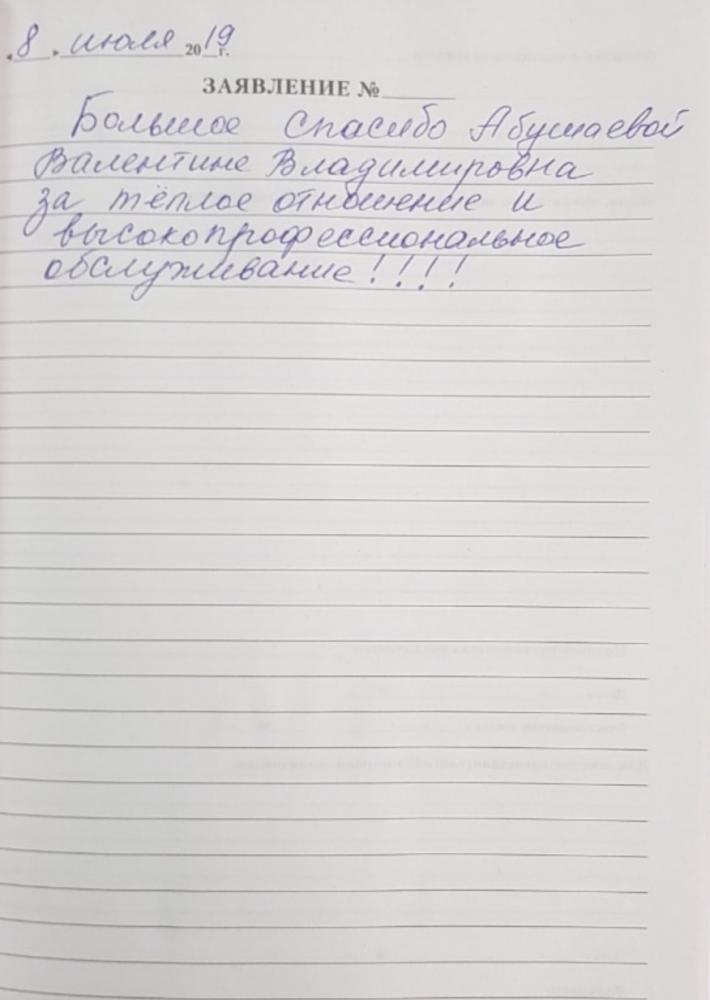 «8» июля 2019 г.
ЗАЯВЛЕНИЕ №
Большое спасибо Абушаевой
Валентине Владимировна
за тёплое отношение и
высокопрофессиональное
обслуживание!!!!